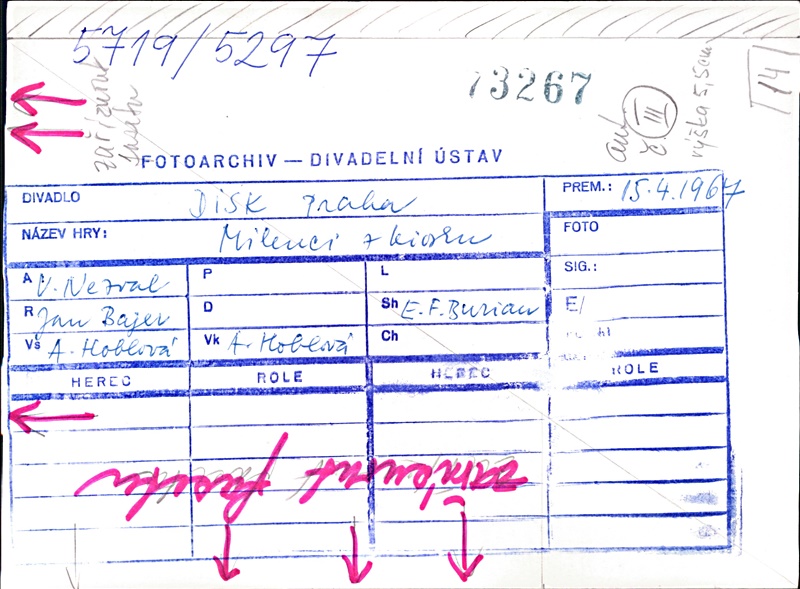 5719/5297
73267
14
zaříznout fasetu
aut. č. III
výška 5,5cm
FOTOARCHIV — DIVADELNÍ ÚSTAV
DIVADLO DISK Praha
PREM.: 15.4.1967
NÁZEV HRY: Milenci z kiosku
FOTO
A V. Nezval P L
SIG.:
R Jan Bajer D Sh E.F. Burian
E/
Vš A. Hoblová Vk A. Hoblová Ch
HEREC ROLE HEREC ROLE
fasetu